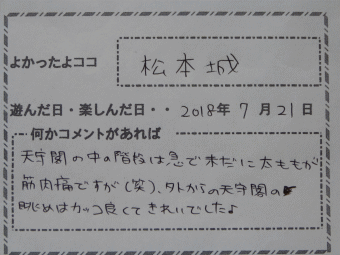 よかったよココ 松本城
遊んだ日・楽しんだ日・・ 2018年 7月21日
何かコメントがあれば
天守閣の中の階段は急で未だに太ももが
筋肉痛ですが(笑)、外からの天守閣の
眺めはカッコ良くてきれいでした♪